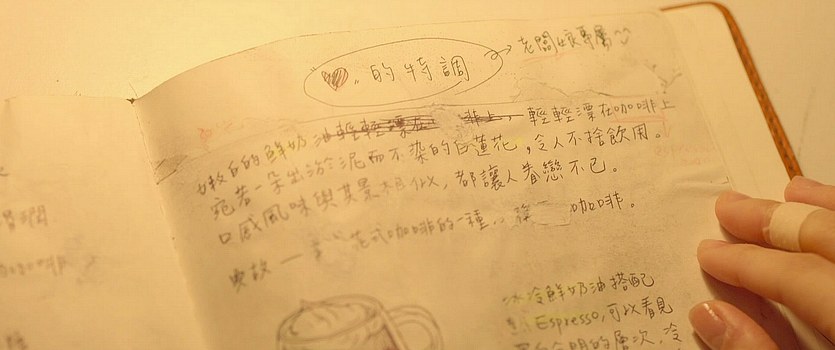 ❤.的特調
老闆娘專屬
嫩白的鮮奶油輕輕漂在 輕輕漂在咖啡上
宛若一朵出淤泥而不染的白蓮花,令人不捨飲用。
口感風味與其景相似,都讓人眷戀不已。
花式咖啡的一種 咖啡。
冰冷鮮奶油搭配
Espresso,可以看見
的層次,冷